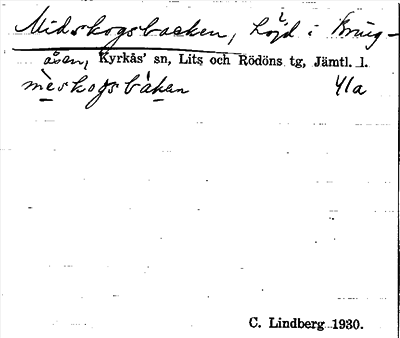 Midskogsbacken, höjd i Krüg-
åsen, Kyrkås' sn, Lits och Rödöns tg, Jämtl. l.
mèskogsbàkan 41a
C. Lindberg 1930.